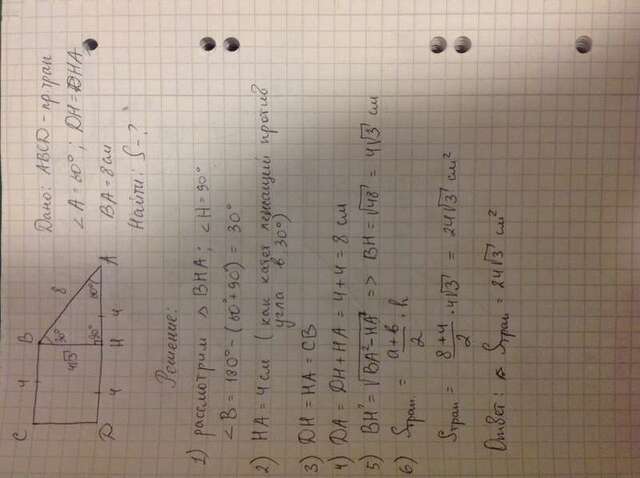 Дано: ABCD - пр. трап
∠A = 60°; DH = DHA
BA = 8 см
Найти: S - ?
C 4 B
30° 8
4√3
90° 60°
D 4 H 4 A
Решение:
1) рассмотрим △ BHA; ∠H = 90°
∠B = 180° - (60° + 90°) = 30°
2) HA = 4 см (как катет лежащий против
угла в 30°)
3) DH = HA = CB
4) DA = DH + HA = 4 + 4 = 8 см
5) BH² = √BA² - HA² => BH = √48 = 4√3 см
6) Sтрап. = a+b/2 · h
Sтрап = 8+4/2 · 4√3 = 24√3 см²
Ответ: Sтрап = 24√3 см²